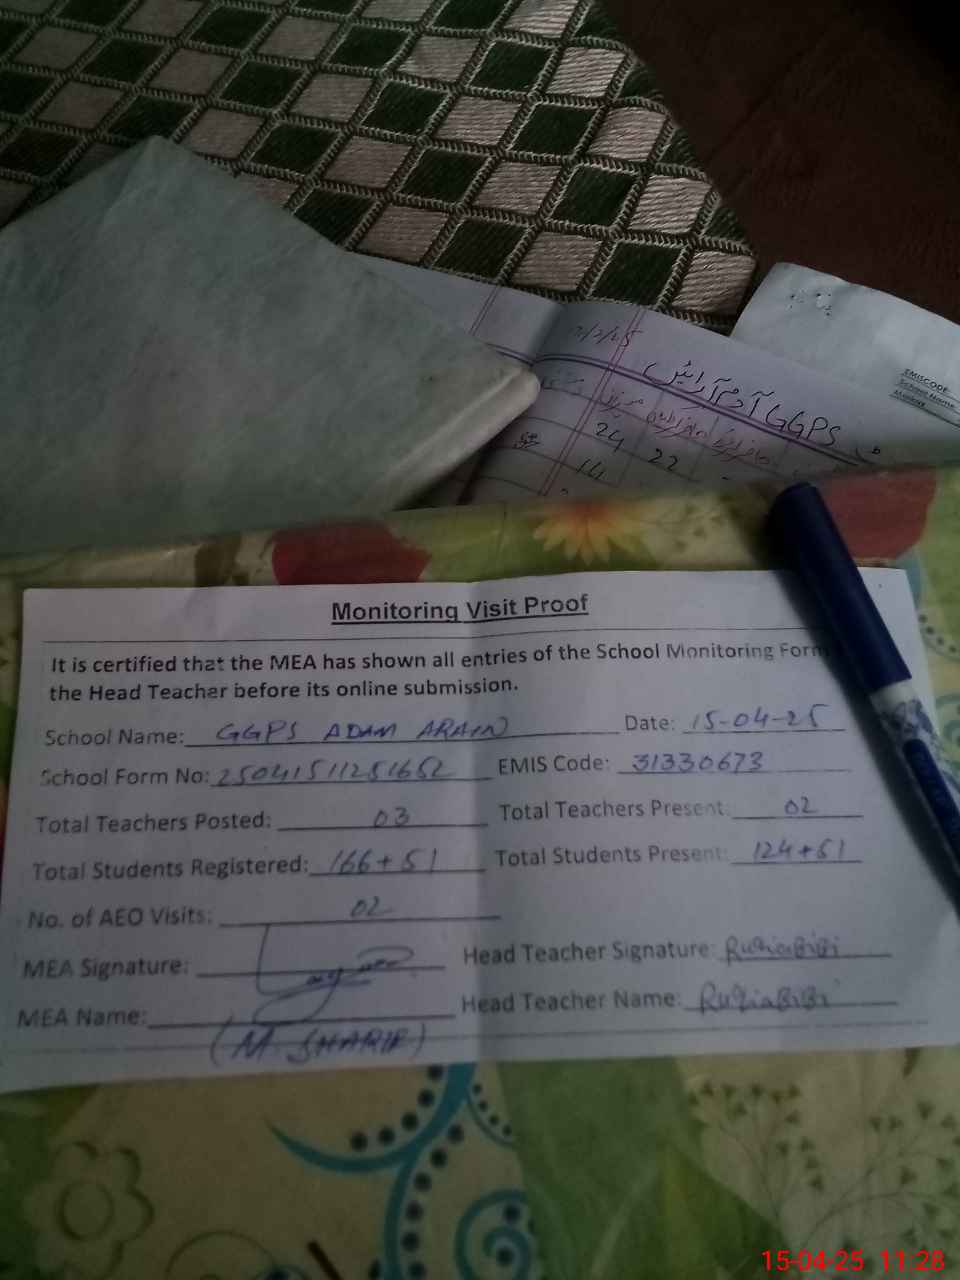 2/2/25
GGPS آدم آرائیں
24
22
14
EMISCODE
School Name
Markaz
Monitoring Visit Proof
It is certified that the MEA has shown all entries of the School Monitoring Form
the Head Teacher before its online submission.
School Name: GGPS ADAM ARAIN Date: 15-04-25
School Form No: 25041511251652 EMIS Code: 31330673
Total Teachers Posted: 03 Total Teachers Present: 02
Total Students Registered: 166+51 Total Students Present: 124+51
No. of AEO Visits: 02
MEA Signature: Head Teacher Signature: RuqiaBiBi
MEA Name: Head Teacher Name: RuqiaBiBi
(M. SHARIF)
15-04-25 11:28